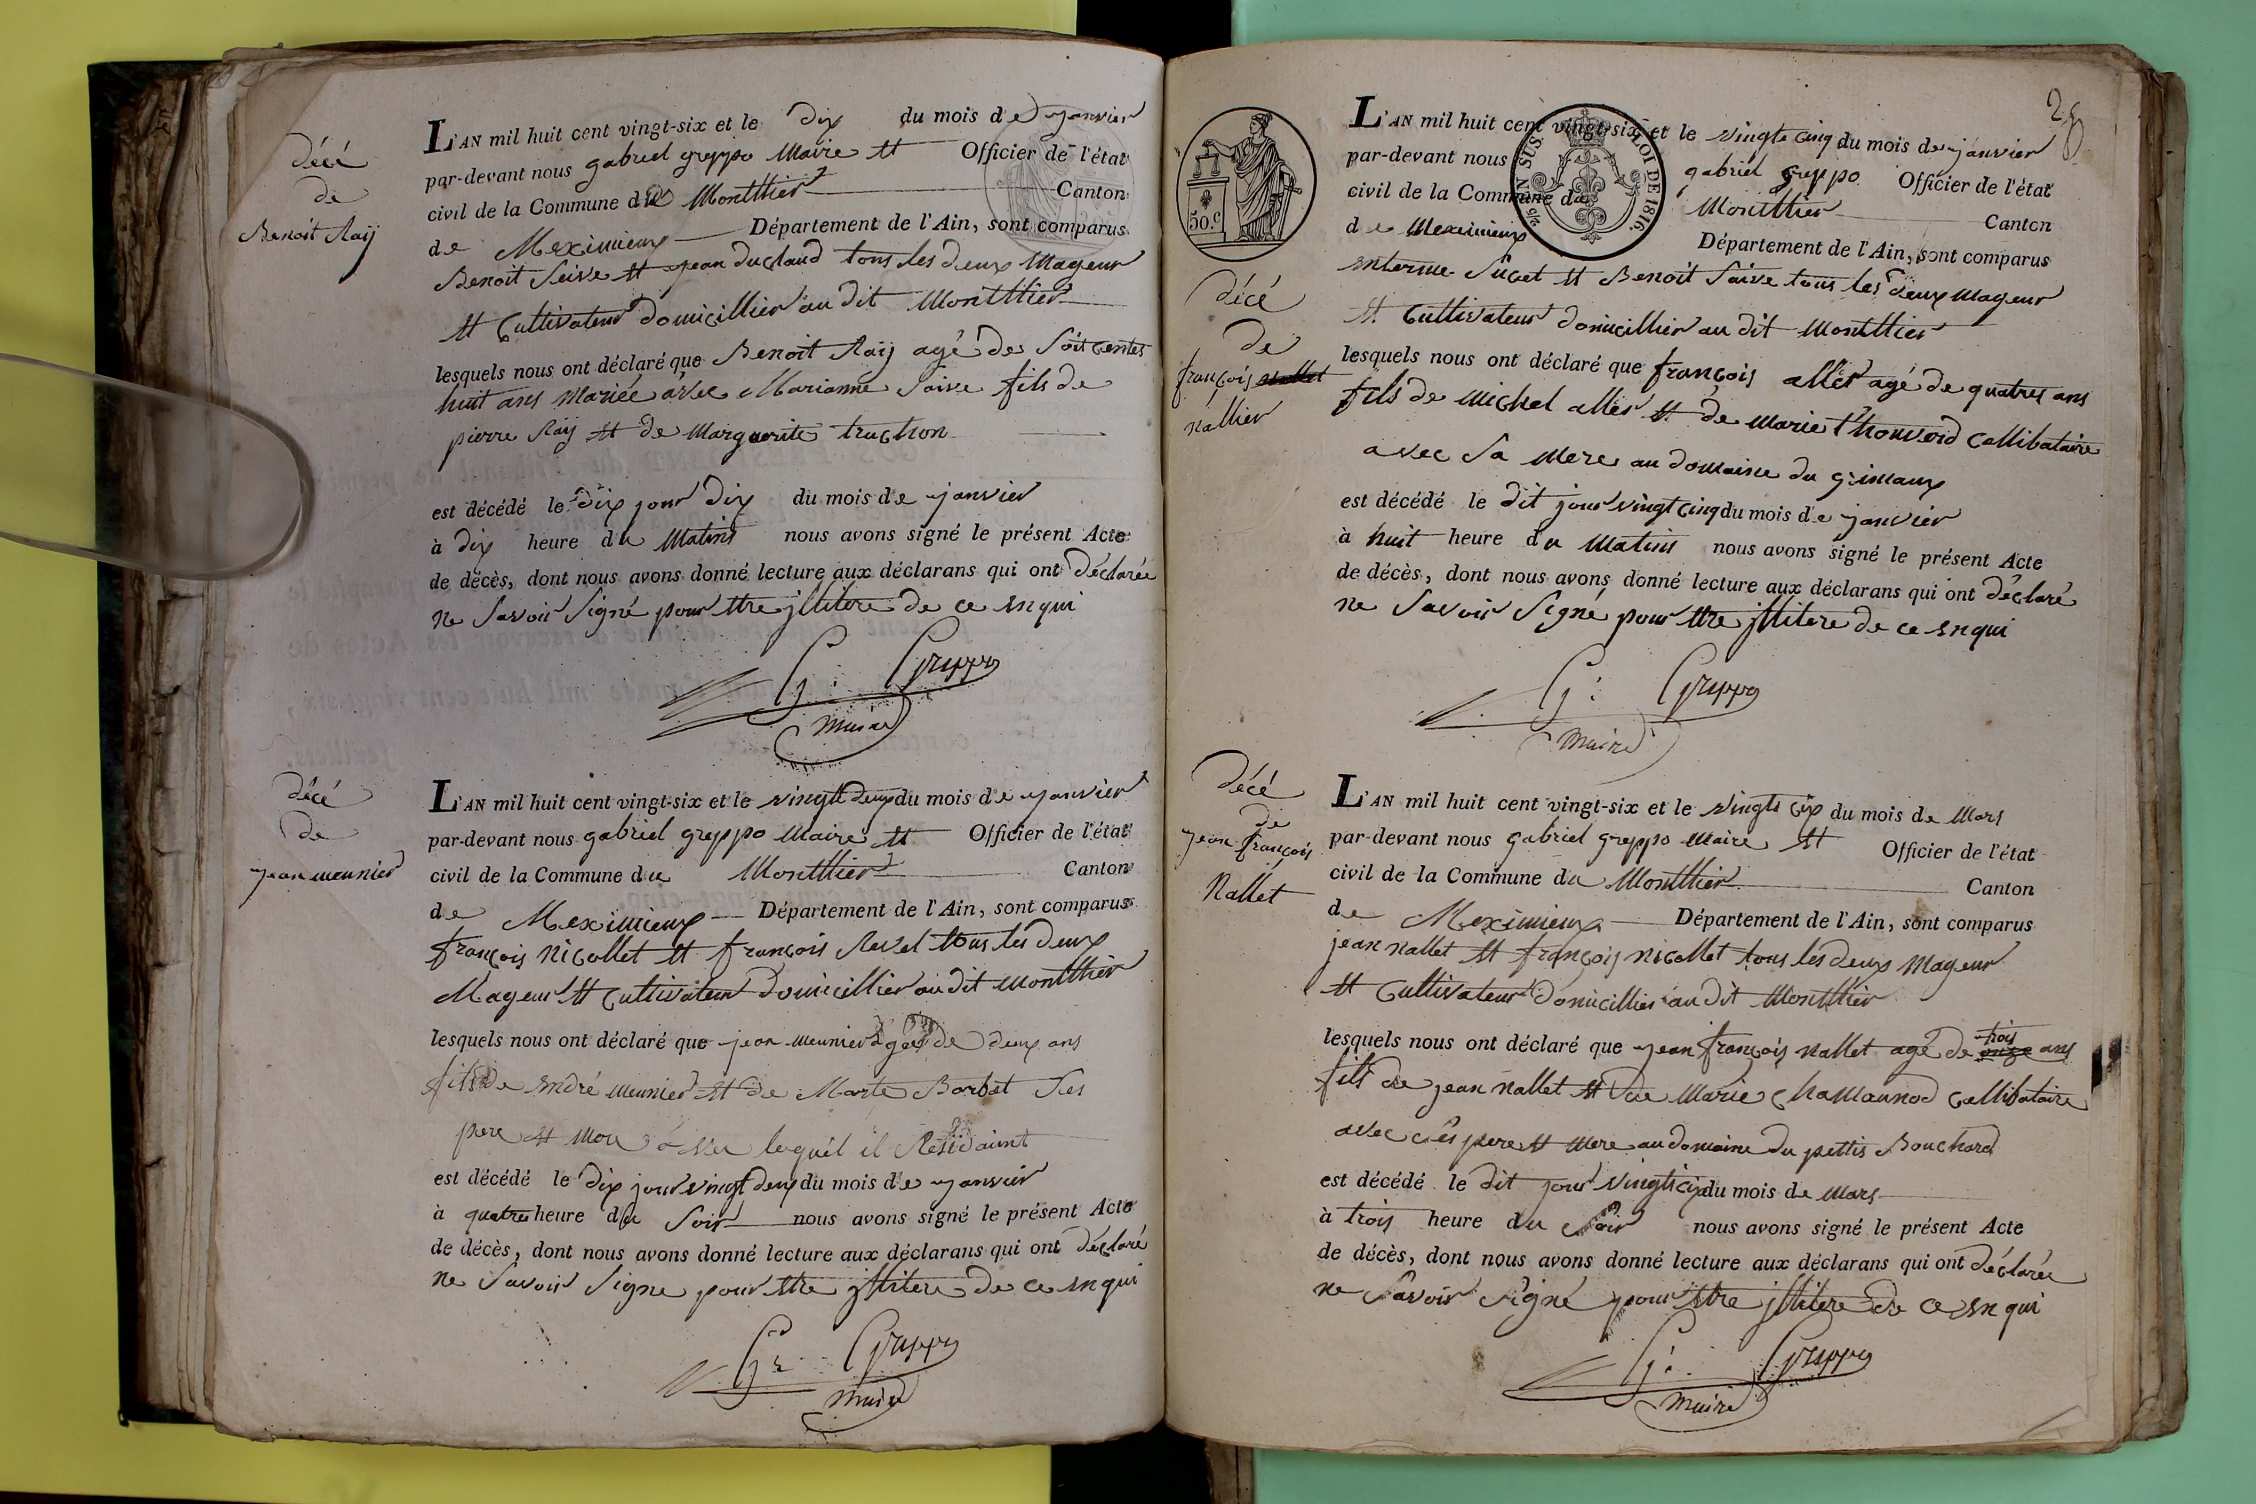 décé
de
Benoit Raÿ
L'AN mil huit cent vingt-six et le dix du mois de janvier
par-devant nous gabriel greppo Maire et Officier de l'état
civil de la Commune du Montllier Canton
de Meximieux Département de l'Ain, sont comparus
Benoit Seive et jean duclaud tous les deux Mageur
et Cultivateur domicillier au dit Montllier
lesquels nous ont déclaré que Benoit Raÿ agé des Soit centes
huit ans Mariée avec Marianne Saive fils de
pierre Raÿ et de Marguerite truchon
est décédé le dix jour dix du mois de janvier
à dix heure du Matins nous avons signé le présent Acte
de décès, dont nous avons donné lecture aux déclarans qui ont déclarée
ne Savoir Signé pour ttre jllitere de ce enqui
G: Greppo
Maire
décé
de
jean meunier
L'AN mil huit cent vingt-six et le vingtt deux du mois de janvier
par-devant nous gabriel greppo Maire et Officier de l'état
civil de la Commune du Montllier Canton
de Meximieux Département de l'Ain, sont comparus
françois Nicollet et françois Revel tous les deux
Mageur et Cultivateur domicillier au dit Montllier
lesquels nous ont déclaré que jean meunier agée de deux ans
fils de André meunier et de Marte Barbet Ses
pere et Mere avec lequél il Residaiunt
est décédé le dix jour vingt deux du mois de janvier
à quatres heure du Soir nous avons signé le présent Acte
de décès, dont nous avons donné lecture aux déclarans qui ont déclaré
ne Savoir Signe pour ttre jllitere de ce enqui
G: Greppo
Maire
28
50.c
EN SUS. LOI DE 1816.
décé
de
françois nallet
nallier
L'AN mil huit cent vingt-six et le vingts cinq du mois de janvier
par-devant nous gabriel greppo Officier de l'état
civil de la Commune du Montllier Canton
de Meximieux Département de l'Ain, sont comparus
enterme Sucet et Benoit Saive tous les deux Mageur
et Cultivateur domicillier au dit Montllier
lesquels nous ont déclaré que françois aller agé de quatres ans
fils de Michel aller et de Marie thouvard Cellibataire
avec Sa Mere au domaine du grimaux
est décédé le dit jour vingt cinq du mois de janvier
à huit heure du Matins nous avons signé le présent Acte
de décès, dont nous avons donné lecture aux déclarans qui ont déclaré
ne Savoir Signé pour ttre jllitere de ce enqui
G: Greppo
Maire
décé
de
jean françois
Nallet
L'AN mil huit cent vingt-six et le vingts cix du mois de Mars
par-devant nous gabriel greppo Maire et Officier de l'état
civil de la Commune du Montllier Canton
de Meximieux Département de l'Ain, sont comparus
jean nallet et françois nicollet tous les deux Mageur
et Cultivateur domicillier au dit Montllier
trois
lesquels nous ont déclaré que jean françois nallet agé de onze ans
fils de jean nallet et de Marie Chamaunod Cellibataire
avec ces pere et mere au domaine du pettis Bouchard
est décédé le dit jour vingt cix du mois de Mars
à trois heure du Soir nous avons signé le présent Acte
de décès, dont nous avons donné lecture aux déclarans qui ont déclarée
ne Savoir Signé pour ttre jllitere de ce enqui
G: Greppo
Maire